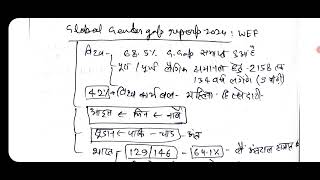 Global Gender gap report 2024 : WEF
विश्व → 68.5% G.Gap समाप्त हुआ है
पूर्ण लैंगिक समानता हेतु - 2158 तक
134 वर्ष लगेंगे (5 पीढ़ी)
42% विश्व कार्यबल - महिला हिस्सेदारी
आइस ← फिन ← नार्वे
सूडान ← पाक ← चाड
भारत → 129/146 → 64.1%